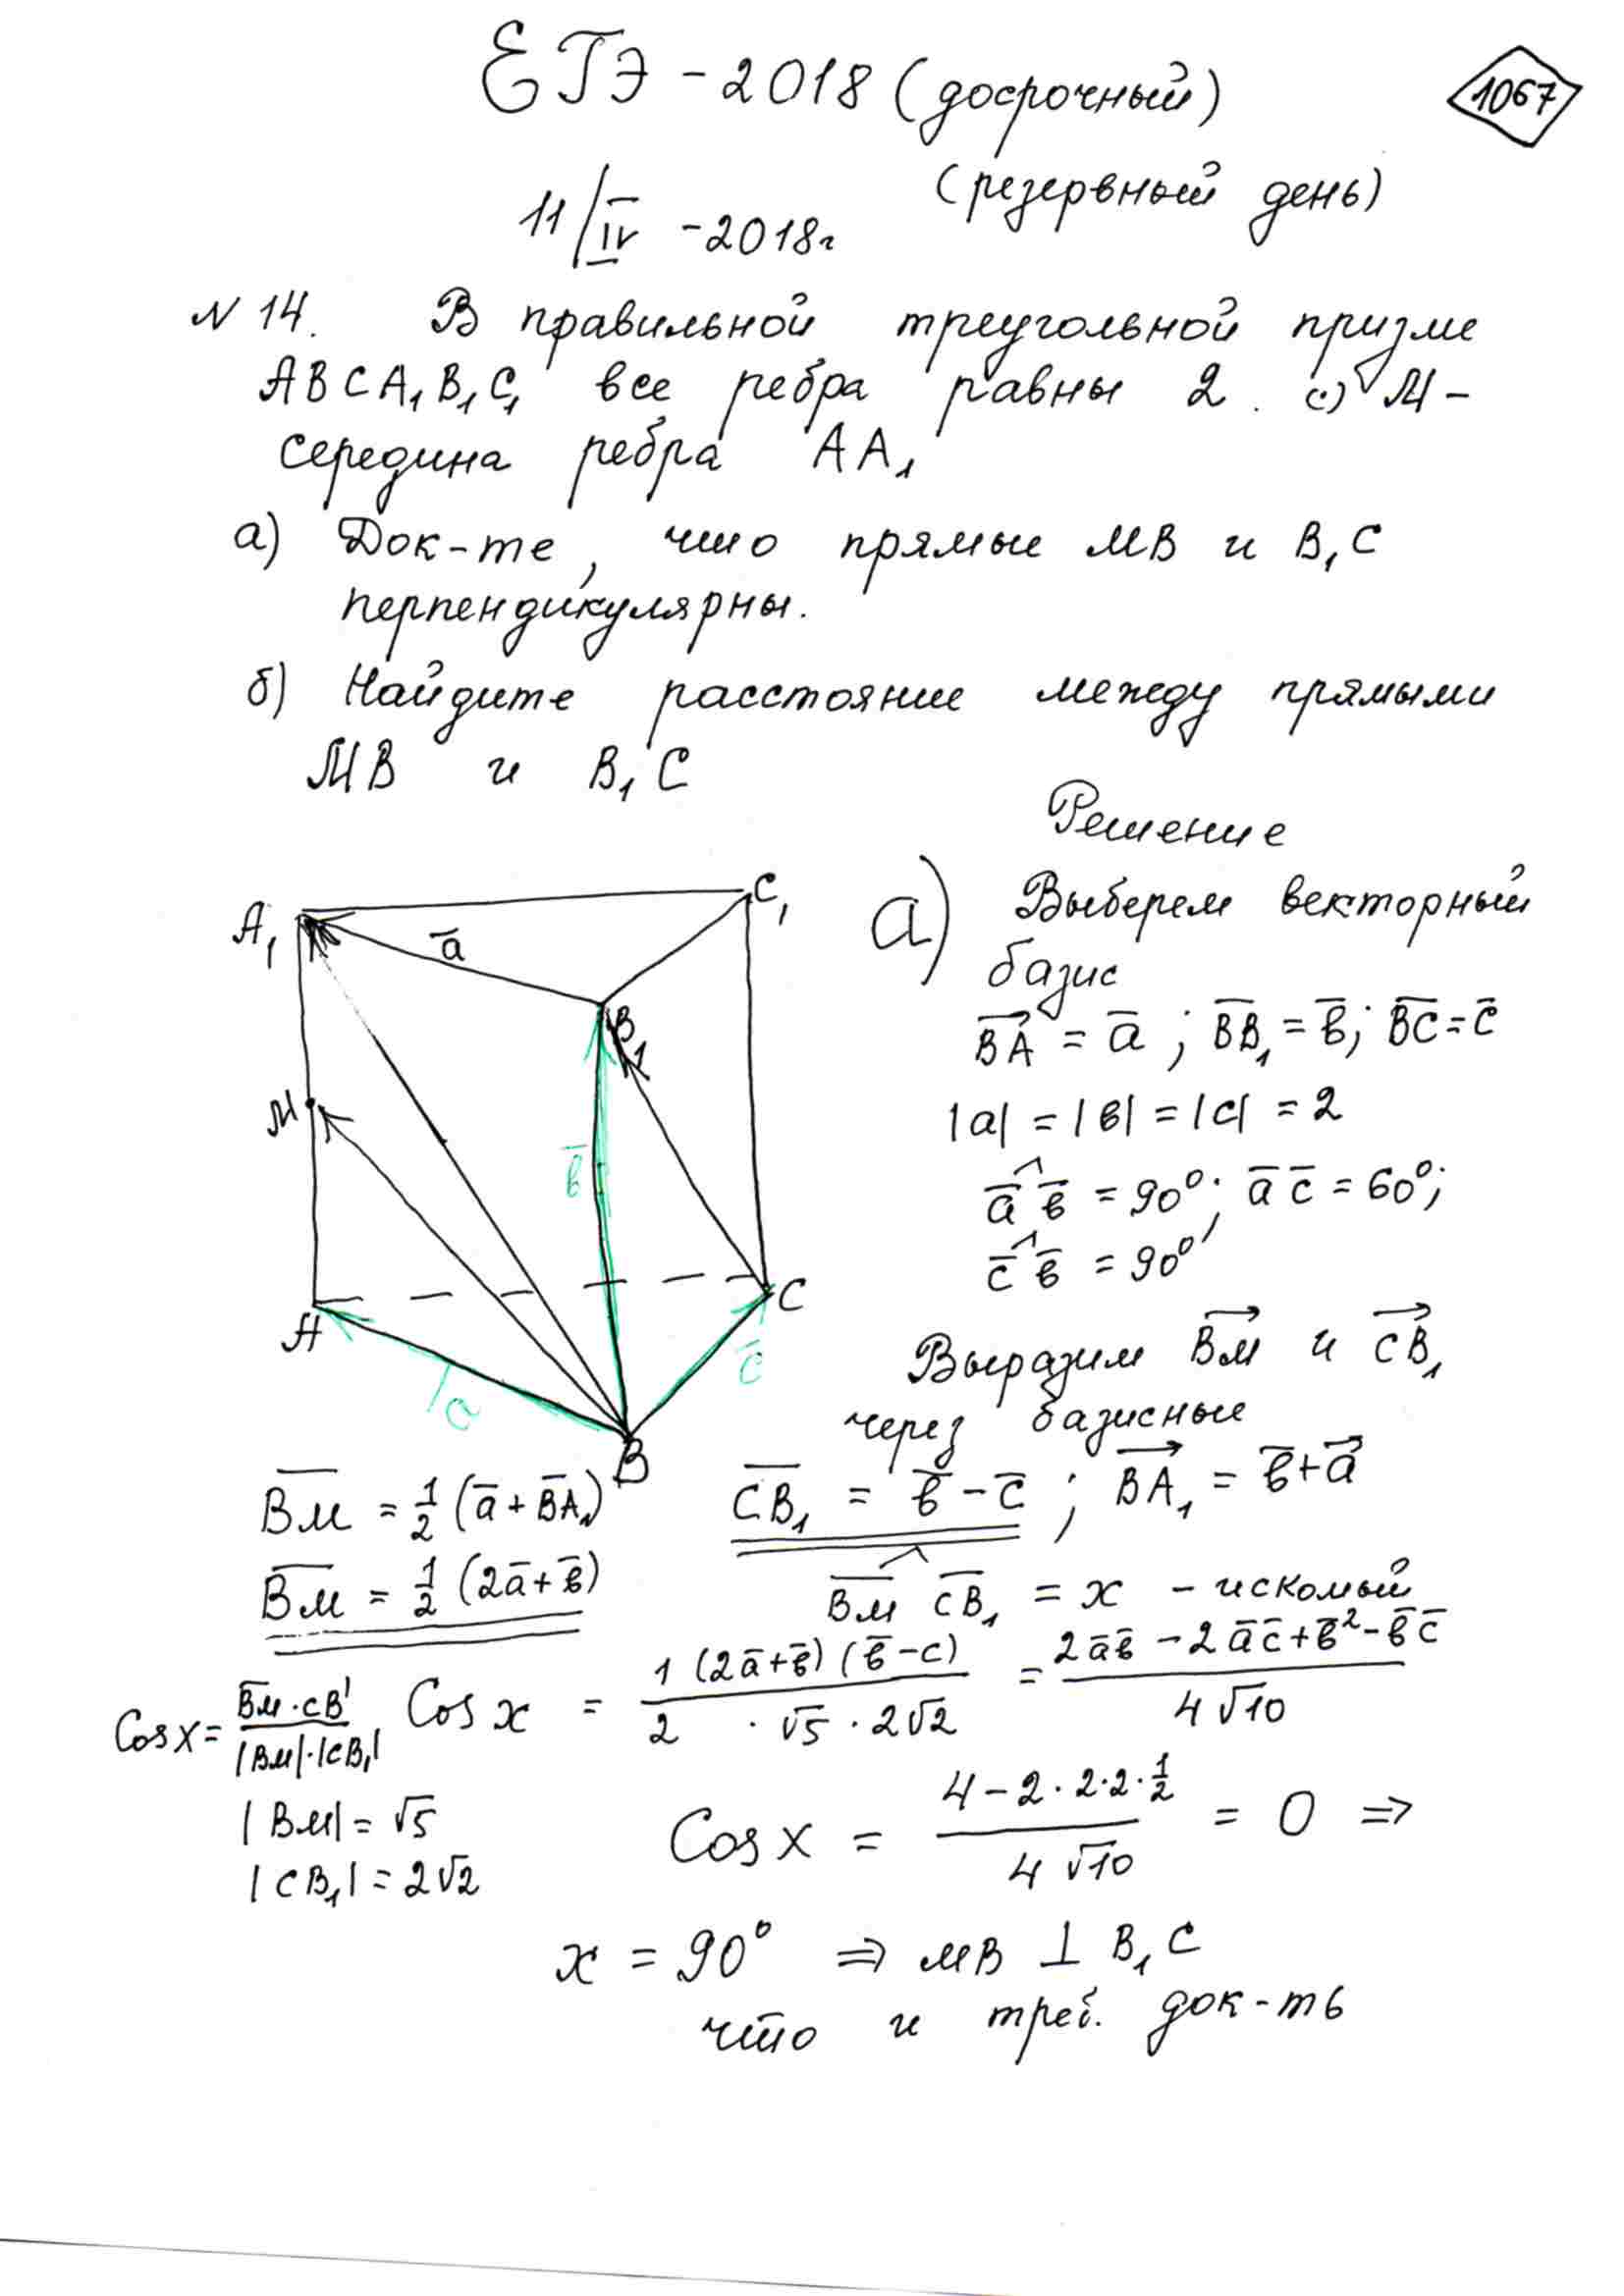 ЕГЭ - 2018 (досрочный)
1067
(резервный день)
11/IV - 2018г
N 14. В правильной треугольной призме
ABCA₁B₁C₁ все ребра равны 2. с) М -
середина ребра AA₁
а) Док-те, что прямые MB и B₁C
перпендикулярны.
б) Найдите расстояние между прямыми
MB и B₁C
Решение
а) Выберем векторный
базис
BA = a̅; BB₁ = b̅; BC = c̅
|a| = |b| = |c| = 2
a̅ b̅ = 90°; a̅ c̅ = 60°;
c̅ b̅ = 90°
A₁
C₁
a̅
B₁
M
b̅
A
C
c̅
a
B
Выразим BM и CB₁
через базисные
BM = 1/2 (a̅ + BA₁)
CB₁ = b̅ - c̅; BA₁ = b̅ + a̅
BM = 1/2 (2a̅ + b̅)
BM CB₁ = x - искомый
Cos x = BM · CB' / |BM| · |CB₁|
Cos x = 1 (2a̅ + b̅) (b̅ - c) / 2 · √5 · 2√2 = 2a̅b̅ - 2a̅c̅ + b̅² - b̅c̅ / 4√10
|BM| = √5
|CB₁| = 2√2
Cos x = 4 - 2 · 2 · 2 · 1/2 / 4√10 = 0 ⇒
x = 90° ⇒ MB ⊥ B₁C
что и треб. док-ть